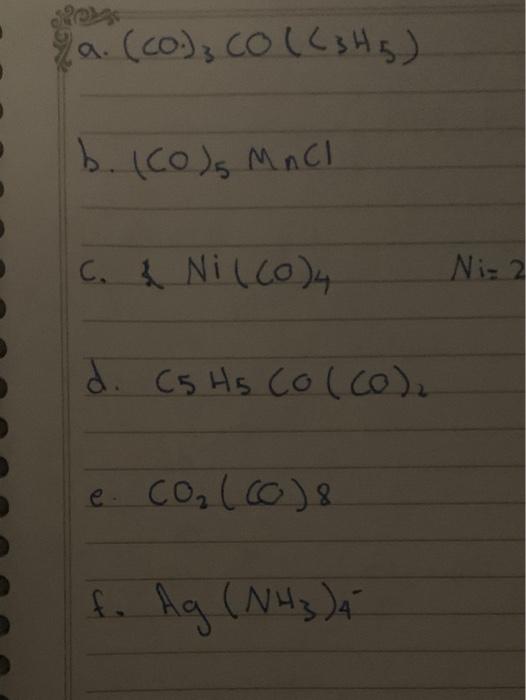 a. (CO)₃ CO (C₃H₅)
b. (CO)₅ MnCl
c. Ni(CO)₄ Ni=2
d. C5H5 CO(CO)₂
e. CO₂(CO)8
f. Ag(NH₃)₄⁻